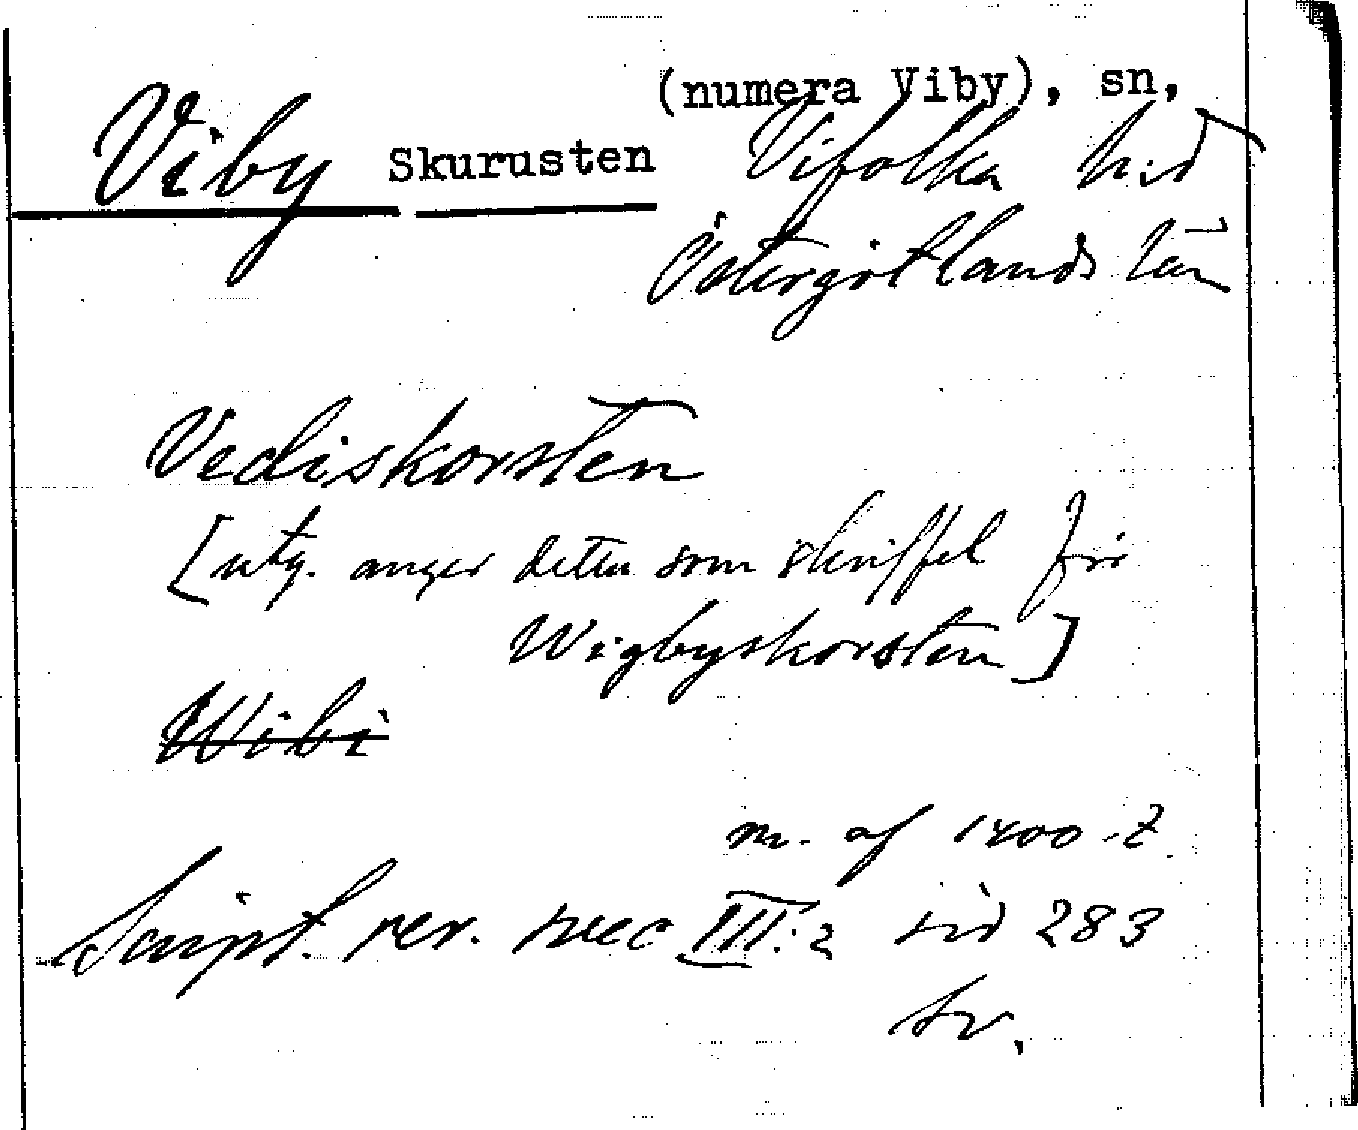 (numera Viby), sn,
Viby Skurusten Vifolka hd
Östergötlands län
Vediskorsten
[utg. anger detta som skriffel för
Wigbyskorsten]
Wibi
m. af 1400-t
Script. rer. svec III:2 sid 283
sv.